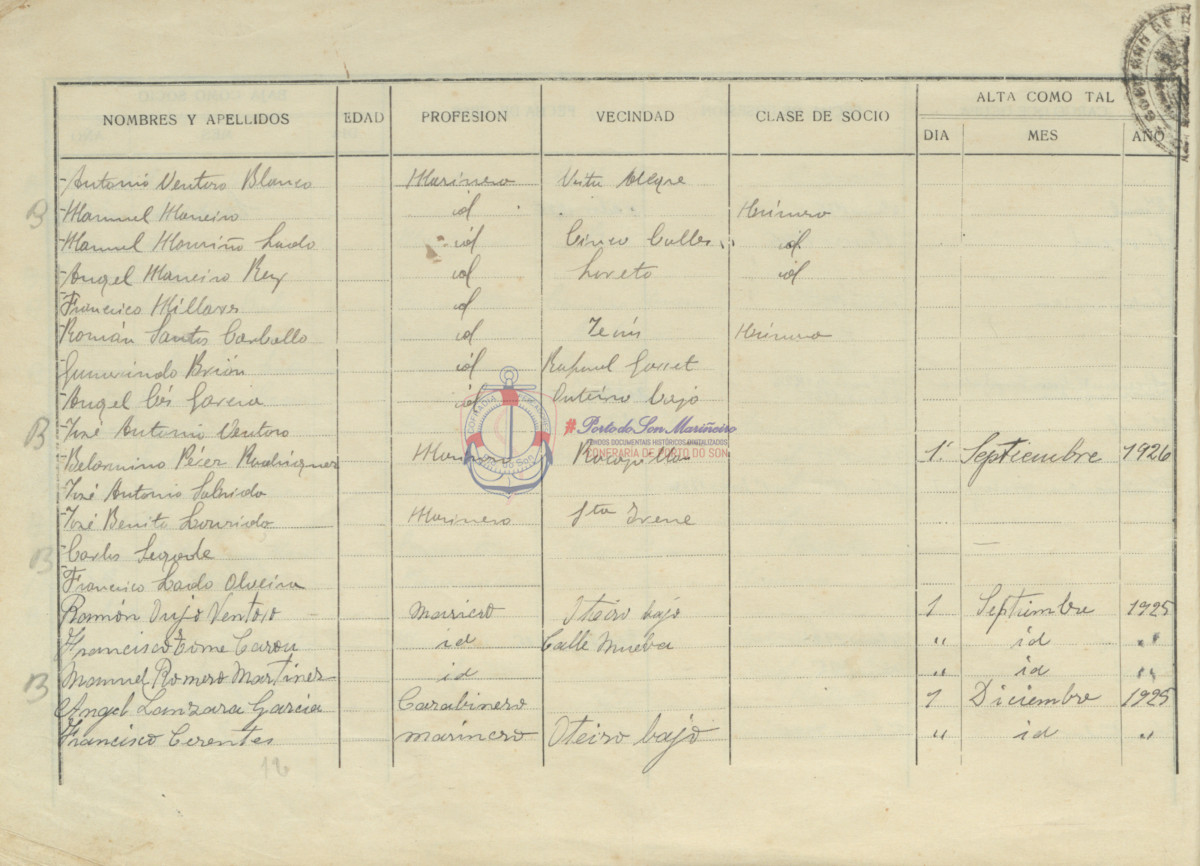 ALTA COMO TAL
NOMBRES Y APELLIDOS EDAD PROFESION VECINDAD CLASE DE SOCIO DIA MES AÑO
Antonio Ventoso Blanco Marinero Vista Alegre
B Manuel Maneiro id
Manuel Mariño Lado id Cinco Calles id
Angel Maneiro Rey id Loreto id
Francisco Millares id
Román Santos Carballo id
Gumersindo Brión id Rafael
Angel Cós Garcia id Outeiro bajo
B José Antonio Ventoso
Belarmino Pérez Rodriguez Marinero 1º Septiembre 1926
José Antonio
José Benito Lourido Marinero Sta Irene
B Carlos
Francisco Lado Olveira
Ramón Ventoso Oteiro bajo 1 Septiembre 1925
Francisco Tome Carou id Calle Nueba " id "
B Manuel Romero Martinez id " id "
Angel Lanzara Garcia Carabinero 1 Diciembre 1925
Francisco Cerentes marinero Oteiro bajo " id "
12
COFRADIA
do Son
#PortodoSonMariñeiro
FONDOS DOCUMENTAIS HISTÓRICOS DIXITALIZADOS
CONFRARÍA DE PORTO DO SON